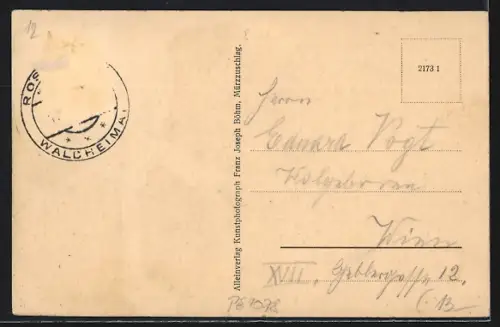 12
ROS
WALDHEIMAT
Alleinverlag Kunstphotograph Franz Joseph Böhm, Mürzzuschlag.
2173 1
Herrn
Eduard Vogt
Wien
XVII, Geblergasse 12.
13